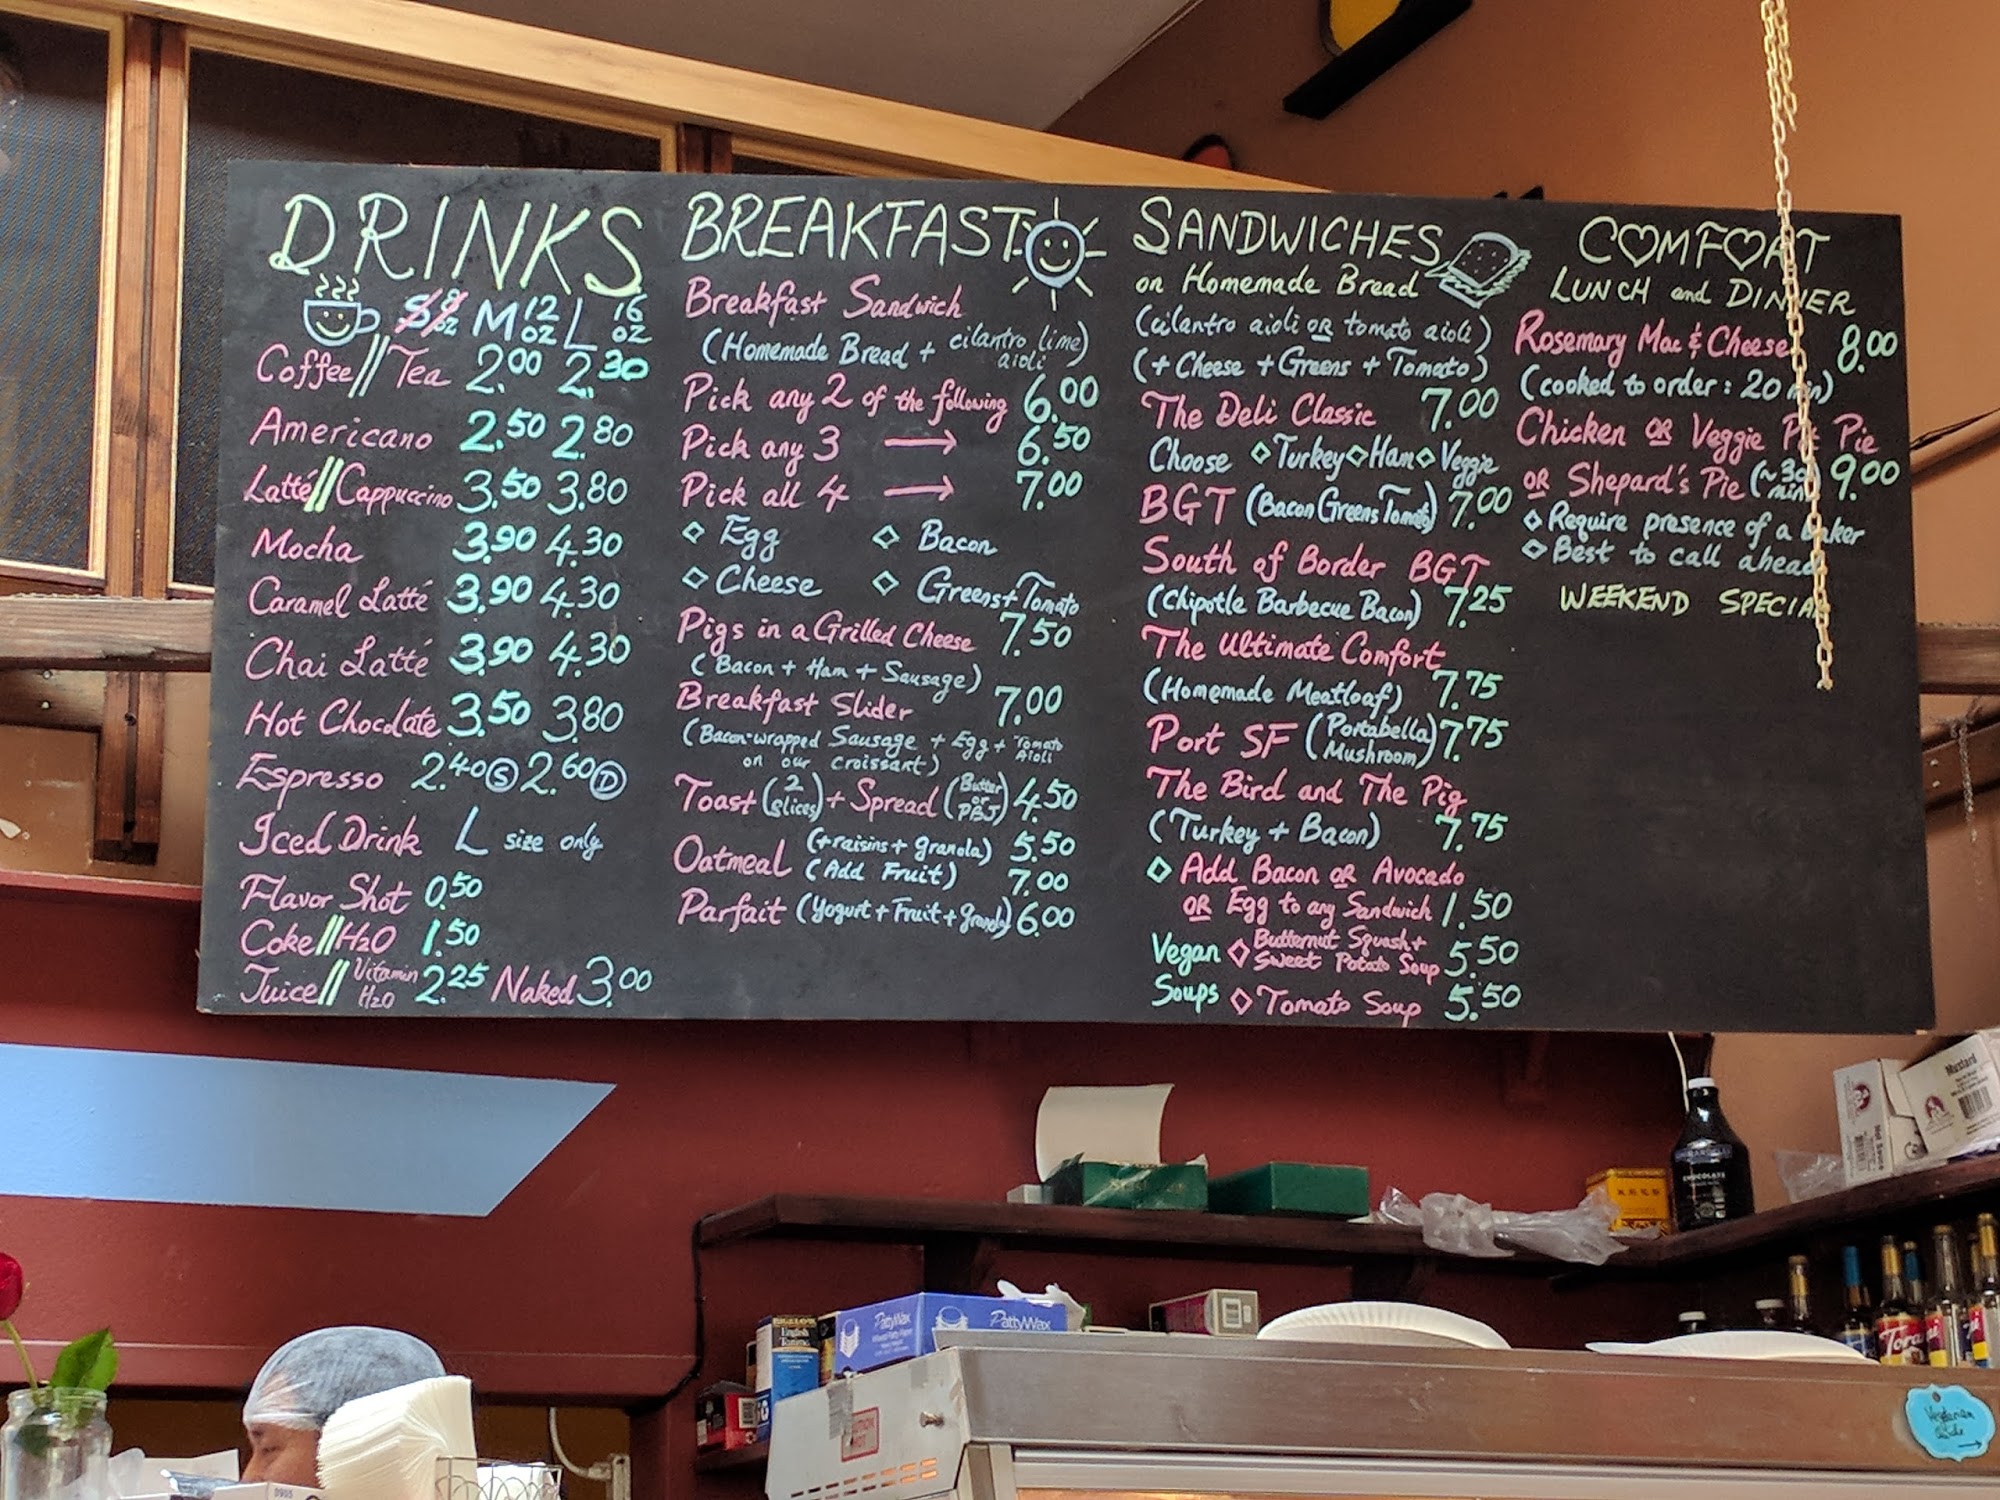 DRINKS
S 8 oz M 12 oz L 16 oz
Coffee // Tea 2.00 2.30
Americano 2.50 2.80
Latté // Cappuccino 3.50 3.80
Mocha 3.90 4.30
Caramel Latté 3.90 4.30
Chai Latté 3.90 4.30
Hot Chocolate 3.50 3.80
Espresso 2.40 S 2.60 D
Iced Drink L size only
Flavor Shot 0.50
Coke // H2O 1.50
Juice // Vitamin H2O 2.25 Naked 3.00
BREAKFAST
Breakfast Sandwich
(Homemade Bread + cilantro lime aioli)
Pick any 2 of the following 6.00
Pick any 3 → 6.50
Pick all 4 → 7.00
◇ Egg ◇ Bacon
◇ Cheese ◇ Greens + Tomato
Pigs in a Grilled Cheese 7.50
(Bacon + Ham + Sausage)
Breakfast Slider 7.00
(Bacon-wrapped Sausage + Egg + Tomato Aioli
on our croissant)
Toast (2 slices) + Spread (Butter or PBJ) 4.50
Oatmeal (+raisins + granola) 5.50
(Add Fruit) 7.00
Parfait (Yogurt + Fruit + granola) 6.00
SANDWICHES
on Homemade Bread
(cilantro aioli OR tomato aioli)
(+ Cheese + Greens + Tomato)
The Deli Classic 7.00
Choose ◇ Turkey ◇ Ham ◇ Veggie
BGT (Bacon Greens Tomato) 7.00
South of Border BGT
(Chipotle Barbecue Bacon) 7.25
The Ultimate Comfort
(Homemade Meatloaf) 7.75
Port SF (Portabella Mushroom) 7.75
The Bird and The Pig
(Turkey + Bacon) 7.75
◇ Add Bacon OR Avocado
OR Egg to any Sandwich 1.50
Vegan Soups
◇ Butternut Squash + Sweet Potato Soup 5.50
◇ Tomato Soup 5.50
COMFORT
LUNCH and DINNER
Rosemary Mac & Cheese 8.00
(cooked to order: 20 min)
Chicken OR Veggie Pot Pie
OR Shepard's Pie (~30 min) 9.00
◇ Require presence of a baker
◇ Best to call ahead
WEEKEND SPECIAL
Mustard
CHOCOLATE
PattyWax
PattyWax
English
Torani